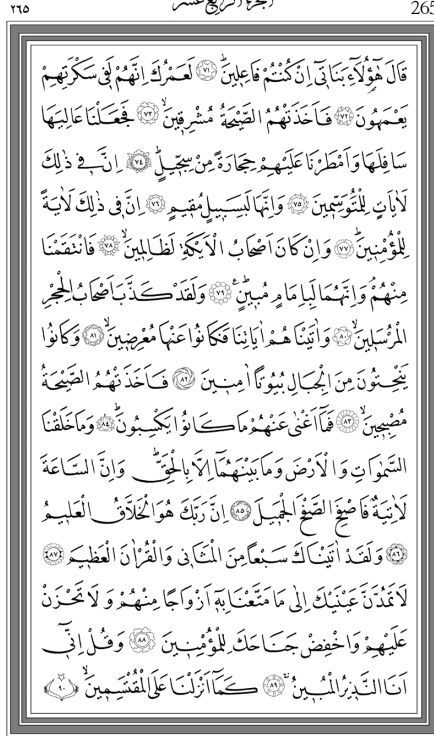 ٢٦٥ الجزء الرابع عشر 265
قَالَ هٰٓؤُ۬لَٓاءِ بَنَات۪ٓي اِنْ كُنْتُمْ فَاعِل۪ينَۜ ﴿٧١﴾ لَعَمْرُكَ اِنَّهُمْ لَف۪ي سَكْرَتِهِمْ
يَعْمَهُونَ ﴿٧٢﴾ فَاَخَذَتْهُمُ الصَّيْحَةُ مُشْرِق۪ينَۙ ﴿٧٣﴾ فَجَعَلْنَا عَالِيَهَا
سَافِلَهَا وَاَمْطَرْنَا عَلَيْهِمْ حِجَارَةً مِنْ سِجّ۪يلٍۜ ﴿٧٤﴾ اِنَّ ف۪ي ذٰلِكَ
لَاٰيَاتٍ لِلْمُتَوَسِّم۪ينَ ﴿٧٥﴾ وَاِنَّهَا لَبِسَب۪يلٍ مُق۪يمٍ ﴿٧٦﴾ اِنَّ ف۪ي ذٰلِكَ لَاٰيَةً
لِلْمُؤْمِن۪ينَۜ ﴿٧٧﴾ وَاِنْ كَانَ اَصْحَابُ الْاَيْكَةِ لَظَالِم۪ينَۙ ﴿٧٨﴾ فَانْتَقَمْنَا
مِنْهُمْۢ وَاِنَّهُمَا لَبِاِمَامٍ مُب۪ينٍۜ ﴿٧٩﴾ وَلَقَدْ كَذَّبَ اَصْحَابُ الْحِجْرِ
الْمُرْسَل۪ينَۙ ﴿٨٠﴾ وَاٰتَيْنَاهُمْ اٰيَاتِنَا فَكَانُوا عَنْهَا مُعْرِض۪ينَۙ ﴿٨١﴾ وَكَانُوا
يَنْحِتُونَ مِنَ الْجِبَالِ بُيُوتًا اٰمِن۪ينَ ﴿٨٢﴾ فَاَخَذَتْهُمُ الصَّيْحَةُ
مُصْبِح۪ينَۙ ﴿٨٣﴾ فَمَٓا اَغْنٰى عَنْهُمْ مَا كَانُوا يَكْسِبُونَۜ ﴿٨٤﴾ وَمَا خَلَقْنَا
السَّمٰوَاتِ وَالْاَرْضَ وَمَا بَيْنَهُمَٓا اِلَّا بِالْحَقِّۜ وَاِنَّ السَّاعَةَ
لَاٰتِيَةٌ فَاصْفَحِ الصَّفْحَ الْجَم۪يلَ ﴿٨٥﴾ اِنَّ رَبَّكَ هُوَ الْخَلَّاقُ الْعَل۪يمُ
﴿٨٦﴾ وَلَقَدْ اٰتَيْنَاكَ سَبْعًا مِنَ الْمَثَان۪ي وَالْقُرْاٰنَ الْعَظ۪يمَ ﴿٨٧﴾
لَا تَمُدَّنَّ عَيْنَيْكَ اِلٰى مَا مَتَّعْنَا بِه۪ٓ اَزْوَاجًا مِنْهُمْ وَلَا تَحْزَنْ
عَلَيْهِمْ وَاخْفِضْ جَنَاحَكَ لِلْمُؤْمِن۪ينَ ﴿٨٨﴾ وَقُلْ اِنّ۪ٓي
اَنَا النَّذ۪يرُ الْمُب۪ينُۚ ﴿٨٩﴾ كَمَٓا اَنْزَلْنَا عَلَى الْمُقْتَسِم۪ينَۙ ﴿٩٠﴾